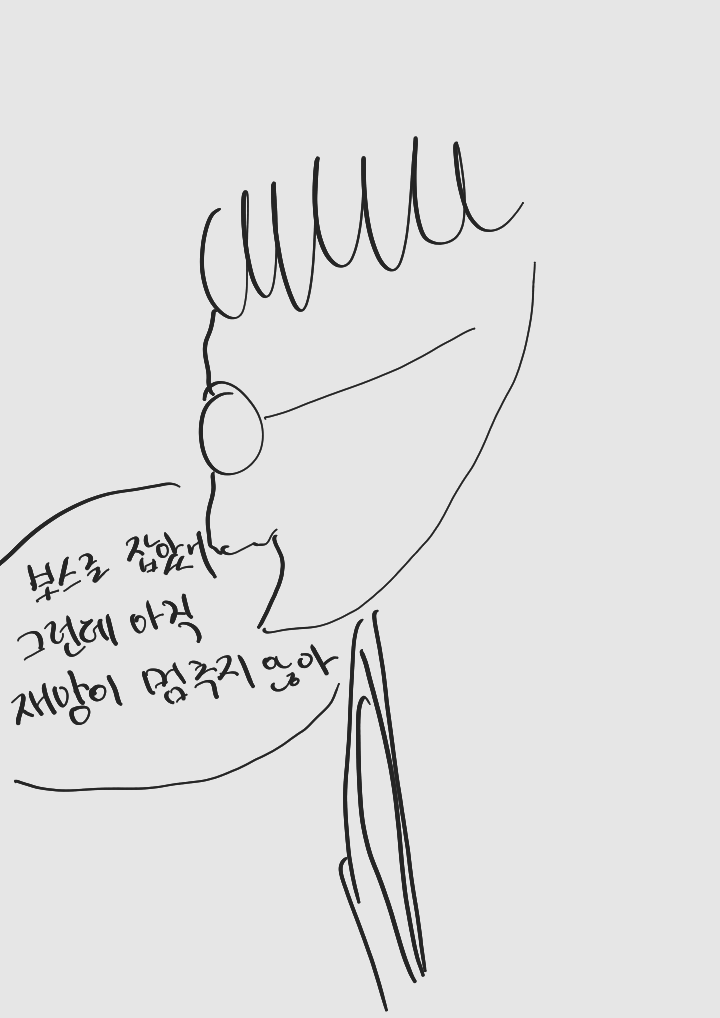 보스를 잡았어
그런데 아직
재앙이 멈추지 않아